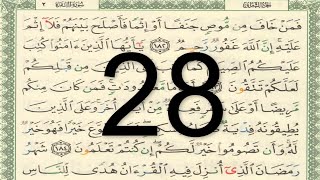 فَمَنْ خَافَ مِن مُّوصٍ جَنَفًا أَوْ إِثْمًا فَأَصْلَحَ بَيْنَهُمْ فَلَآ إِثْمَ
عَلَيْهِ إِنَّ ٱللَّهَ غَفُورٌ رَّحِيمٌ ١٨٢ يَٰٓأَيُّهَا ٱلَّذِينَ ءَامَنُوا۟ كُتِبَ
عَلَيْكُمُ ٱلصِّيَامُ
لَعَلَّكُمْ تَتَّقُونَ فَمَن كَانَ مِنكُم
مَّرِيضًا أَوْ أَيَّامٍ أُخَرَ وَعَلَى ٱلَّذِينَ
يُطِيقُونَهُۥ فِدْيَةٌ فَهُوَ خَيْرٌ
لَّهُۥ وَأَن تَصُومُوا۟ خَيْرٌ لَّكُمْ إِن كُنتُمْ تَعْلَمُونَ ١٨٤ شَهْرُ
رَمَضَانَ ٱلَّذِىٓ أُنزِلَ فِيهِ ٱلْقُرْءَانُ هُدًى لِّلنَّاسِ
28